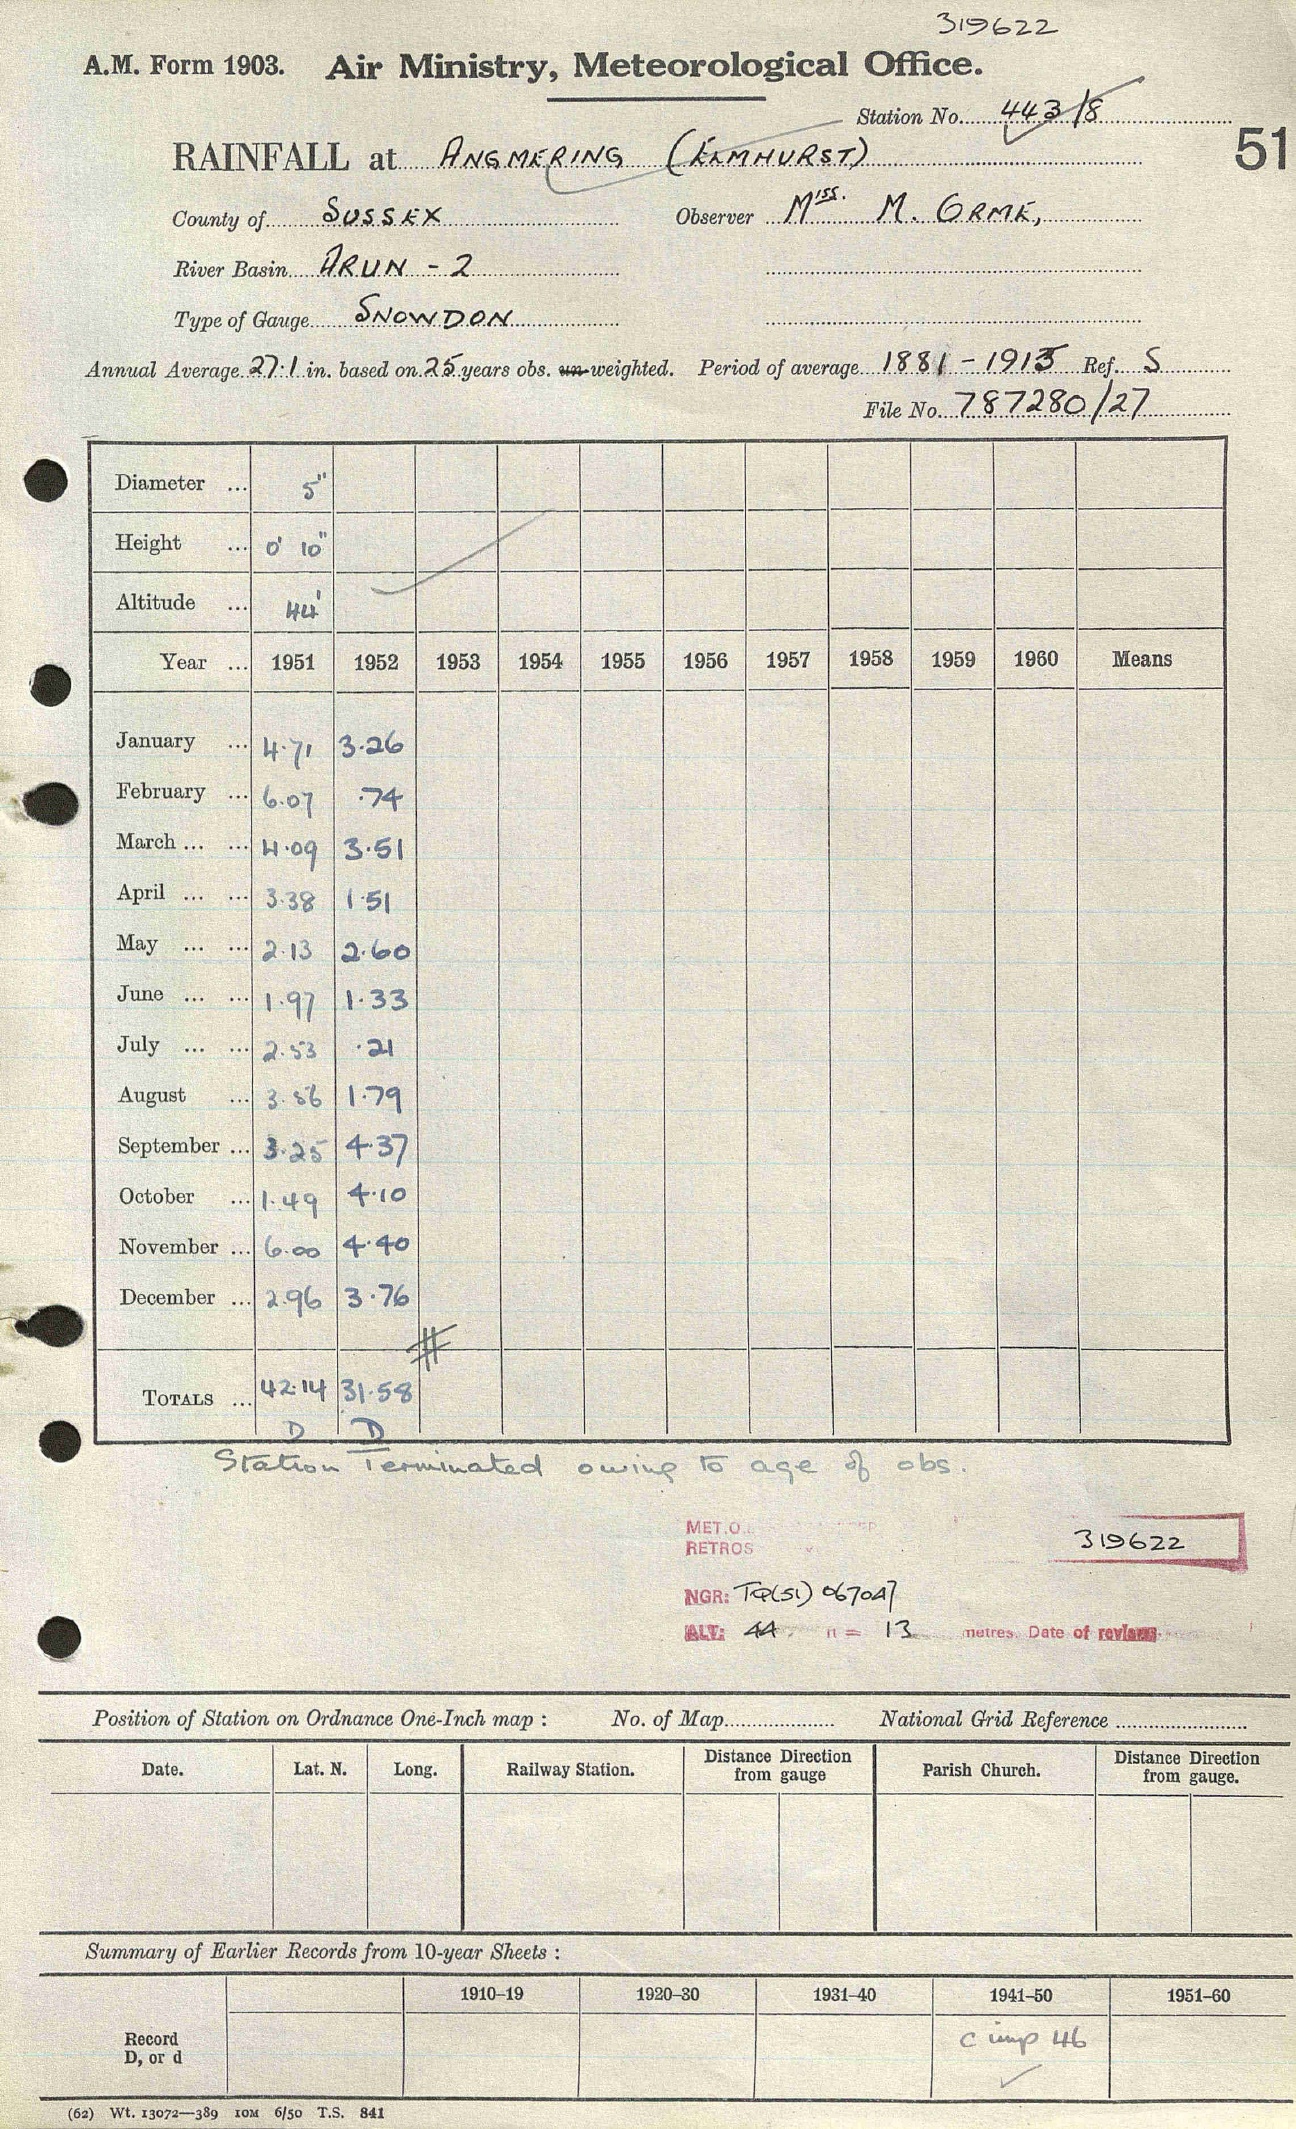 319622
A.M. Form 1903. Air Ministry, Meteorological Office.
Station No. 443/8
51
RAINFALL at ANGMERING (ELMHURST)
County of SUSSEX Observer Miss. M. ORME,
River Basin ARUN - 2
Type of Gauge SNOWDON
Annual Average 27.1 in. based on 25 years obs. un-weighted. Period of average 1881 - 1915 Ref. S
File No. 787280/27
Diameter ... 5"
Height ... 0' 10"
Altitude ... 44'
Year ... 1951 1952 1953 1954 1955 1956 1957 1958 1959 1960 Means
January ... 4.71 3.26
February ... 6.07 .74
March ... ... 4.09 3.51
April ... ... 3.38 1.51
May ... ... 2.13 2.60
June ... ... 1.97 1.33
July ... ... 2.53 .21
August ... 3.56 1.79
September ... 3.25 4.37
October ... 1.49 4.10
November ... 6.00 4.40
December ... 2.96 3.76
TOTALS ... 42.14 31.58
D D
Station Terminated owing to age of obs.
MET.O.
RETROS
319622
NGR: TQ(51) 067047
ALT: 44 ft = 13 metres. Date of
Position of Station on Ordnance One-Inch map : No. of Map National Grid Reference
Date. Lat. N. Long. Railway Station. Distance Direction from gauge Parish Church. Distance Direction from gauge.
Summary of Earlier Records from 10-year Sheets :
1910–19 1920–30 1931–40 1941–50 1951–60
Record D, or d c imp 46
(62) Wt. 13072—389 10M 6/50 T.S. 841